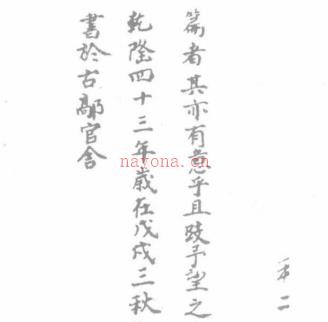 篇者其亦有意乎且跂予望之
乾隆四十三年歲在戊戌三秋
書於古鄗官舍
nayona.cn